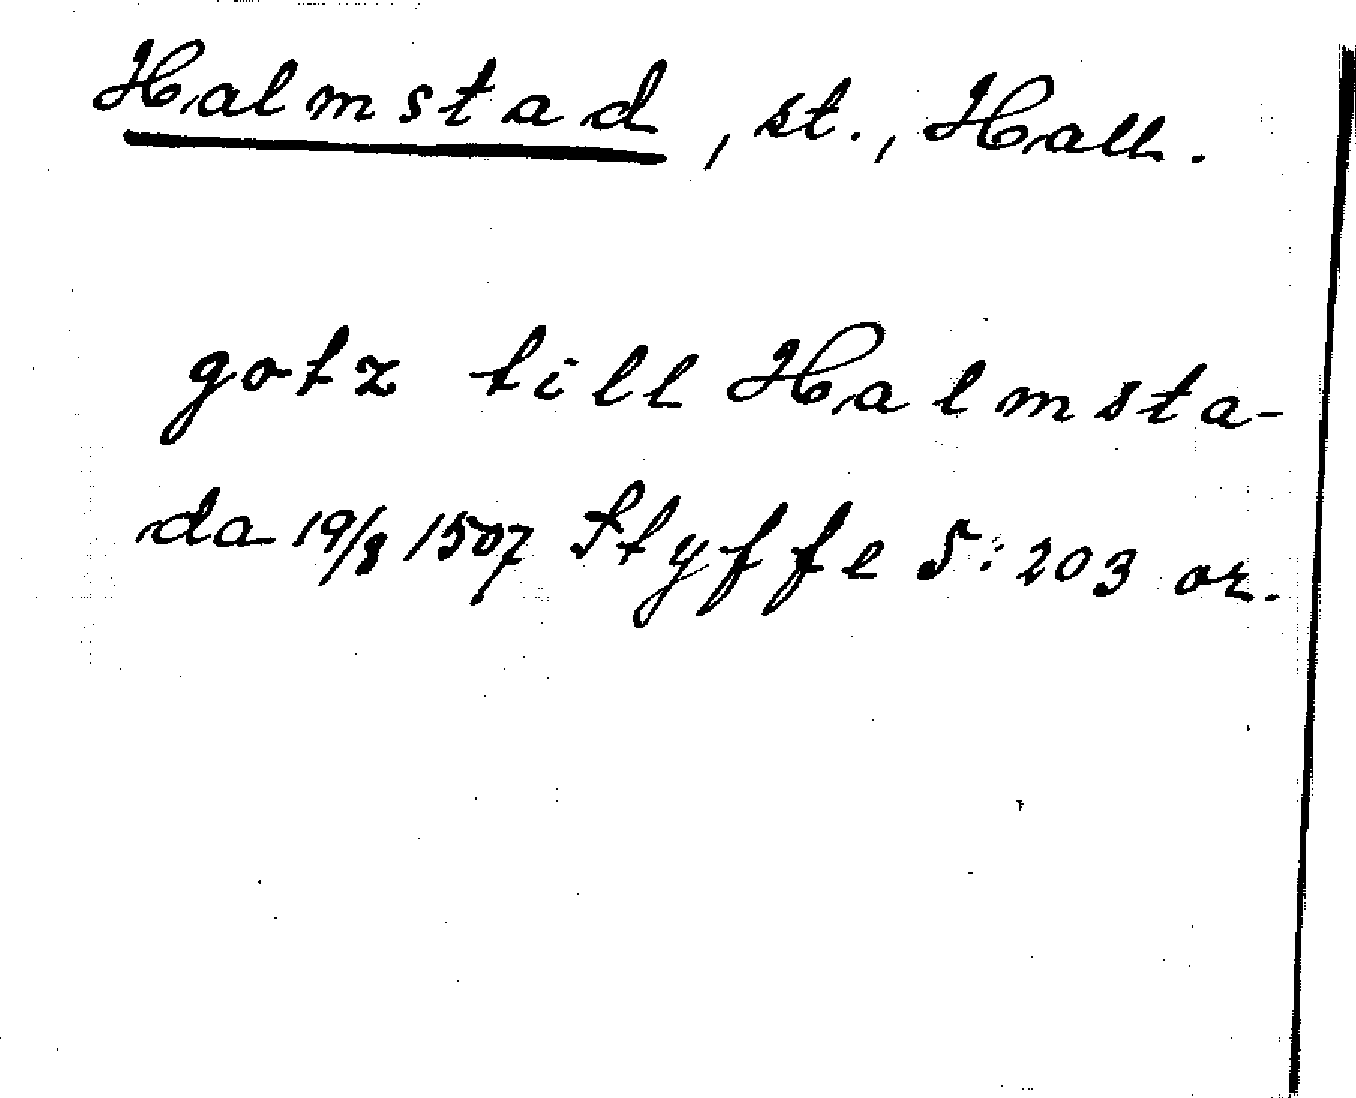 Halmstad, st., Hall.
gotz till Halmsta-
da 19/8 1507 Styffe 5:203 or.